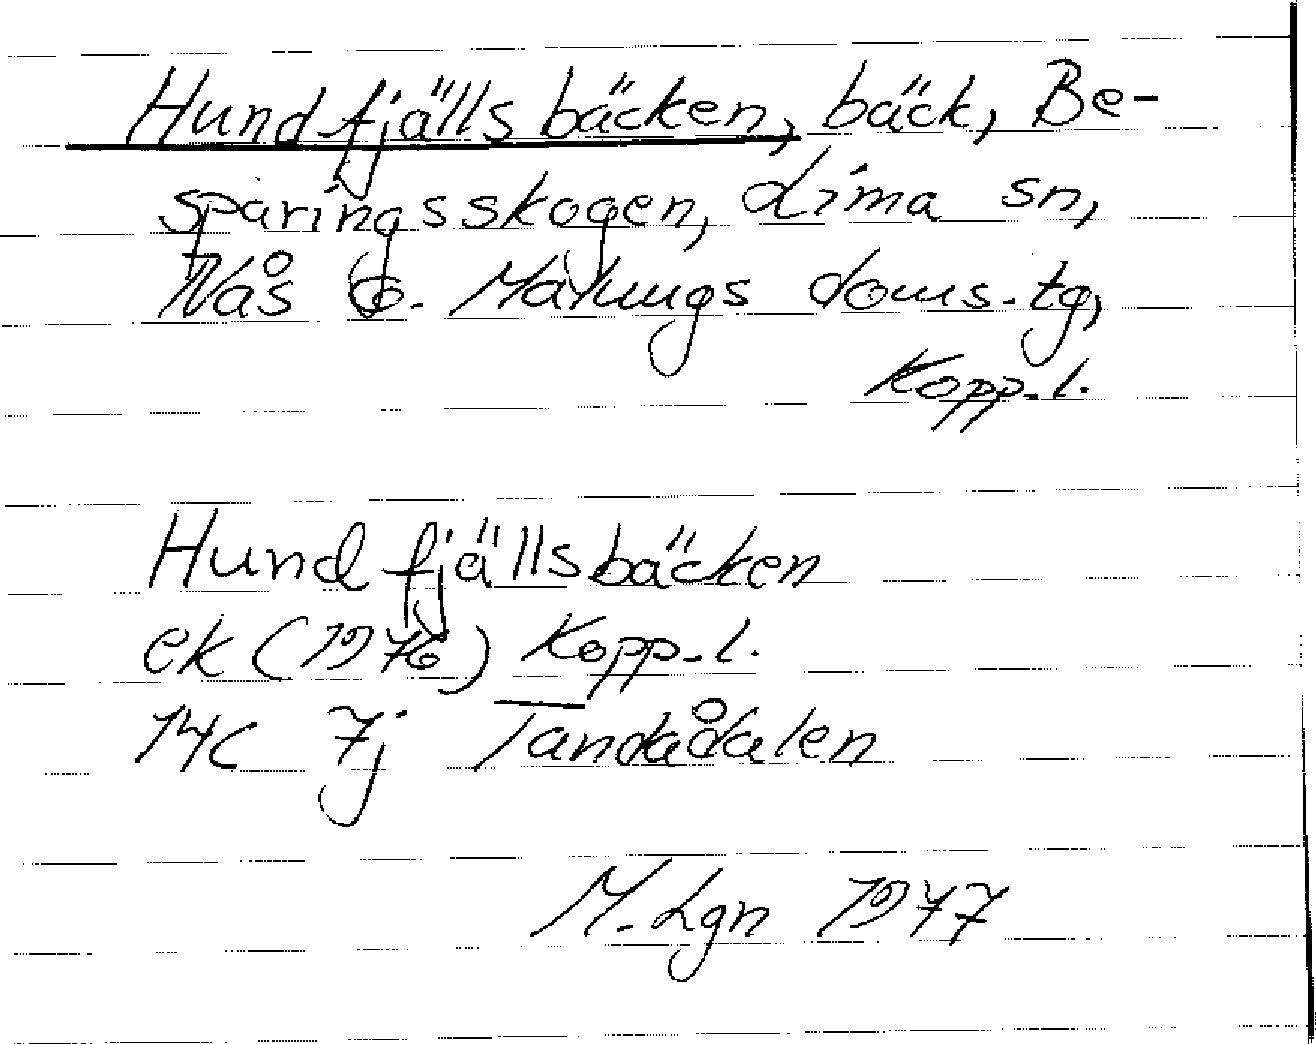 Hundfjällsbäcken, bäck, Be-
sparingsskogen, Lima sn,
Nås o. Malungs doms.tg,
Kopp.l.
Hundfjällsbäcken
ek (1976) Kopp.l.
14C 7j Tandådalen
M.Lgn 1977